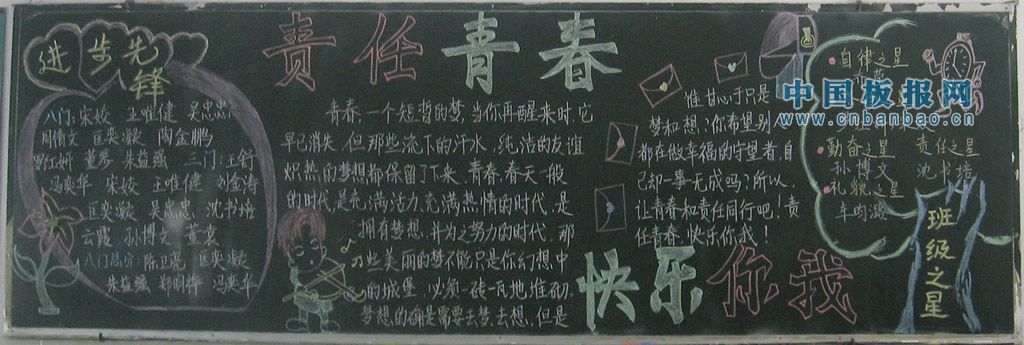 进步先锋
责任青春
八门:宋姣 王唯健 吴忠忠
周倩文 匡奕凝 陶金鹏
三门:王轩
冯英华 宋姣 王唯健 刘金涛
匡奕凝 吴忠忠 沈书培
云霞 孙博文 董袁
陈卫 匡奕凝
朱益蕴 冯英华
青春,一个短暂的梦,当你再醒来时,它
早已消失,但那些流下的汗水,纯洁的友谊
炽热的梦想都保留了下来,青春,春天一般
的时代,是充满活力,充满热情的时代,是
拥有梦想,并为之努力的时代,那
些美丽的梦不能只是你幻想中
的城堡,必须一砖一瓦地堆砌。
梦想的确是需要去梦,去想,但是
谁甘心于只是
梦和想?你希望别人
都在做幸福的守望者,自
己却一事无成吗?所以,
让青春和责任同行吧!责
任青春,快乐你我!
快乐你我
自律之星
勤奋之星 责任之星
孙博文 沈书培
礼貌之星
班级之星
中国板报网
www.cnbanbao.cn